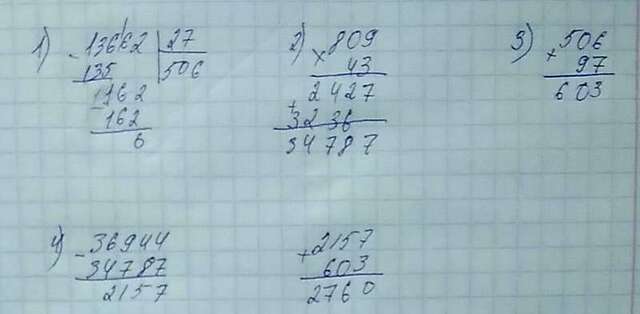 1) -13662 | 27
135 | 506
-162
162
6
2) × 809
43
+ 2427
3236
34787
3) + 506
97
603
4) - 36944
34787
2157
+ 2157
603
2760